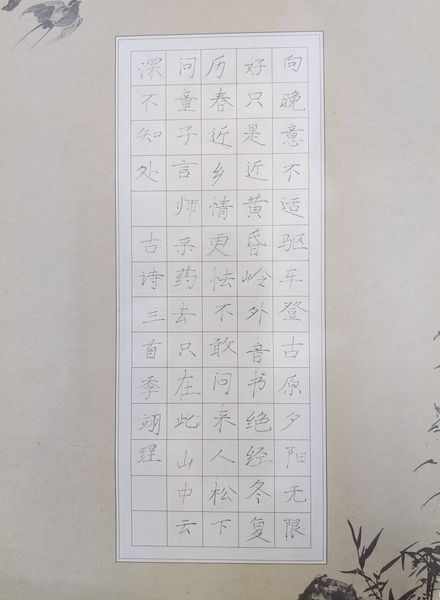 向晚意不适驱车登古原夕阳无限
好只是近黄昏岭外音书绝经冬复
历春近乡情更怯不敢问来人松下
问童子言师采药去只在此山中云
深不知处 古诗三首季翊珵